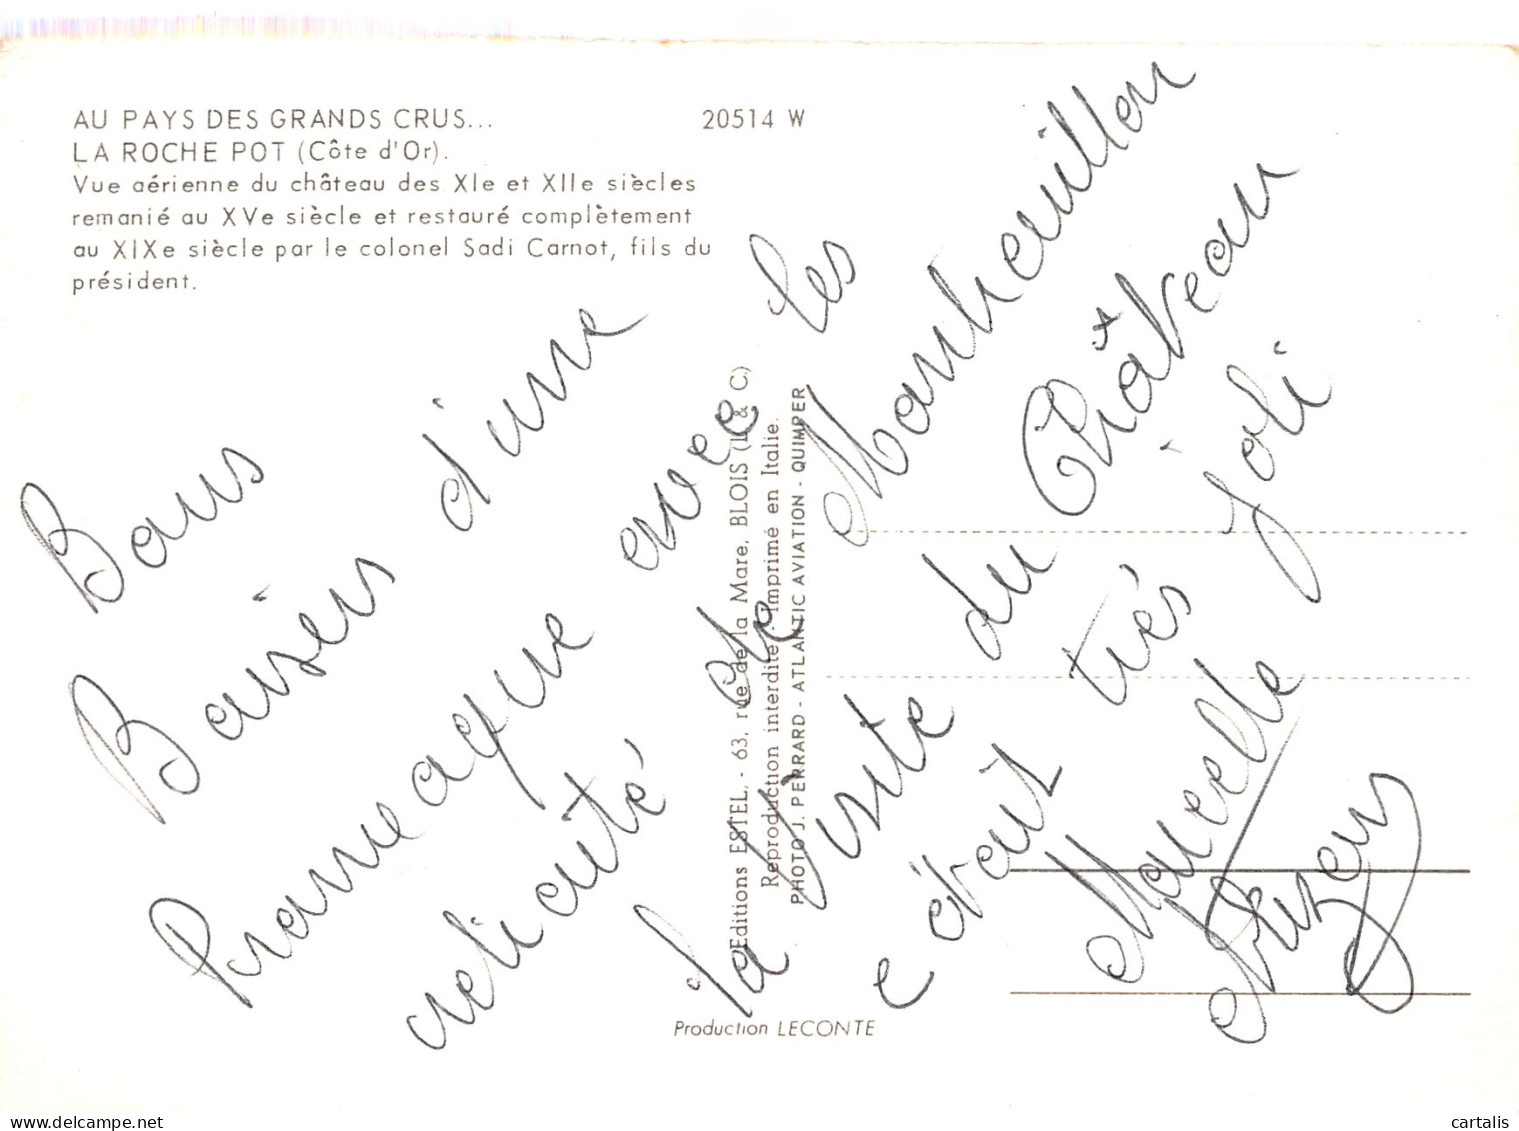 AU PAYS DES GRANDS CRUS...
20514 W
LA ROCHE POT (Côte d'Or).
Vue aérienne du château des XIe et XIIe siècles
remanié au XVe siècle et restauré complètement
au XIXe siècle par le colonel Sadi Carnot, fils du
président.
Bons
Baisers d'une
avec les
la visite du Château
était très joli
Marcelle
Editions ESTEL. - 63, rue de la Mare, BLOIS (L & C)
Reproduction interdite. Imprimé en Italie.
PHOTO J. PERRARD - ATLANTIC AVIATION - QUIMPER
Production LECONTE
cartalis